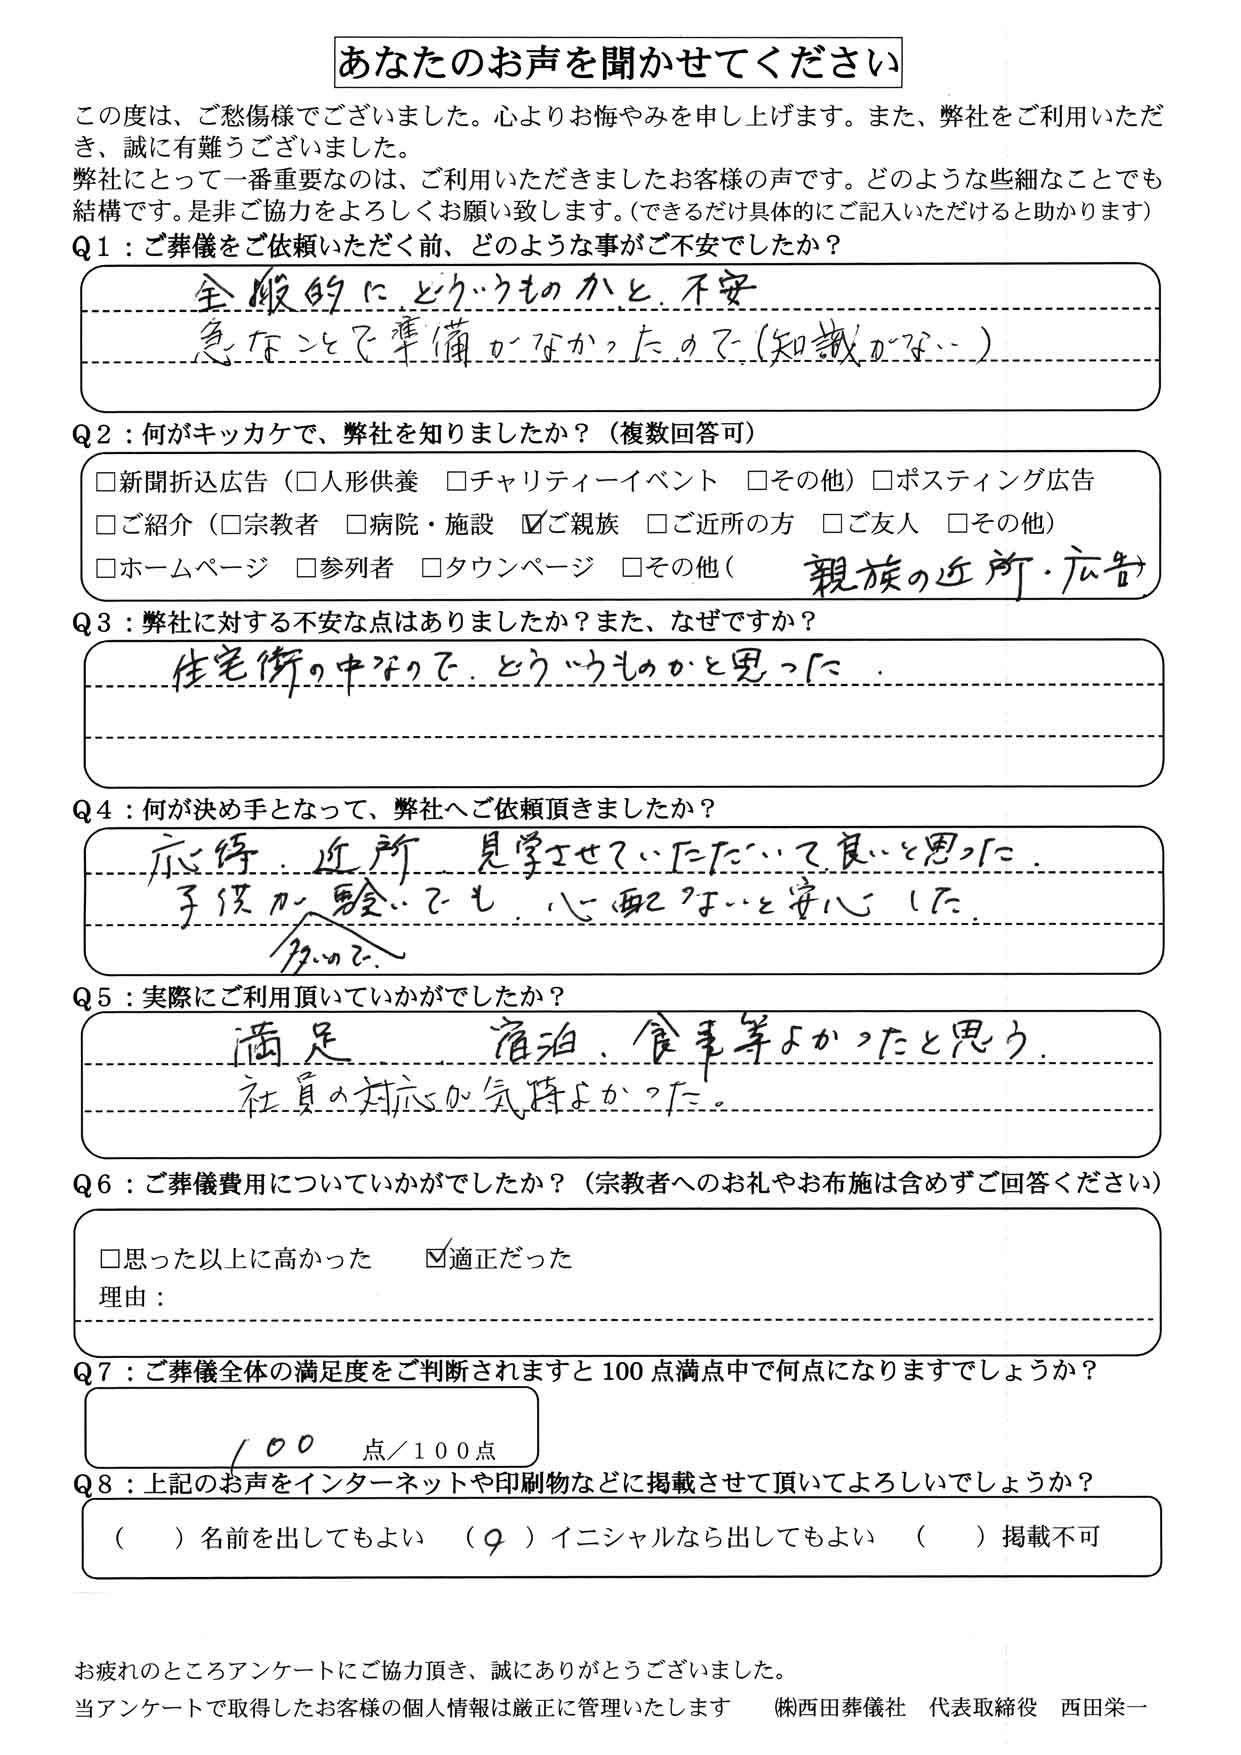 あなたのお声を聞かせてください
この度は、ご愁傷様でございました。心よりお悔やみを申し上げます。また、弊社をご利用いただ
き、誠に有難うございました。
弊社にとって一番重要なのは、ご利用いただきましたお客様の声です。どのような些細なことでも
結構です。是非ご協力をよろしくお願い致します。（できるだけ具体的にご記入いただけると助かります）
Q1：ご葬儀をご依頼いただく前、どのような事がご不安でしたか？
全般的に、どういうものかと、不安
急なことで準備がなかったので（知識がない）
Q2：何がキッカケで、弊社を知りましたか？（複数回答可）
□新聞折込広告（□人形供養　□チャリティーイベント　□その他）□ポスティング広告
□ご紹介（□宗教者　□病院・施設　☑ご親族　□ご近所の方　□ご友人　□その他）
□ホームページ　□参列者　□タウンページ　□その他（　親族の近所・広告）
Q3：弊社に対する不安な点はありましたか？また、なぜですか？
住宅街の中なので、どういうものかと思った．
Q4：何が決め手となって、弊社へご依頼頂きましたか？
応待、近所、見学させていただいて良いと思った．
子供が 騒いでも、心配ないと安心した．
多いので、
Q5：実際にご利用頂いていかがでしたか？
満足．．宿泊、食事等よかったと思う．
社員の対応が気持よかった。
Q6：ご葬儀費用についていかがでしたか？（宗教者へのお礼やお布施は含めずご回答ください）
□思った以上に高かった　☑適正だった
理由：
Q7：ご葬儀全体の満足度をご判断されますと100点満点中で何点になりますでしょうか？
100 点／１００点
Q8：上記のお声をインターネットや印刷物などに掲載させて頂いてよろしいでしょうか？
（　）名前を出してもよい　（○）イニシャルなら出してもよい　（　）掲載不可
お疲れのところアンケートにご協力頂き、誠にありがとうございました。
当アンケートで取得したお客様の個人情報は厳正に管理いたします　㈱西田葬儀社　代表取締役　西田栄一